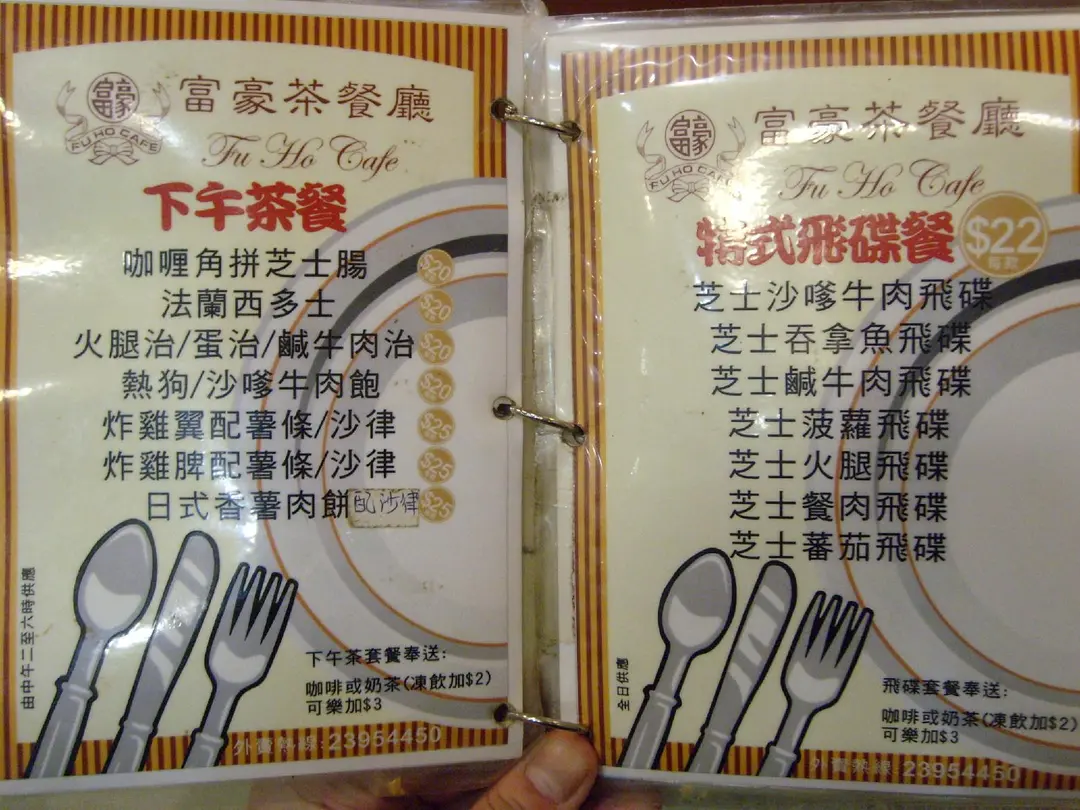 富豪
FU HO CAFE
富豪茶餐廳
Fu Ho Cafe
下午茶餐
咖喱角拼芝士腸 $20
法蘭西多士 $20
火腿治/蛋治/鹹牛肉治 $20
熱狗/沙嗲牛肉飽 $20
炸雞翼配薯條/沙律 $25
炸雞脾配薯條/沙律 $25
日式香薯肉餅配沙律 $25
由中午二至六時供應
下午茶套餐奉送:
咖啡或奶茶(凍飲加$2)
可樂加$3
外賣熱線:23954450
富豪
FU HO CAFE
富豪茶餐廳
Fu Ho Cafe
特式飛碟餐 $22
每款
芝士沙嗲牛肉飛碟
芝士吞拿魚飛碟
芝士鹹牛肉飛碟
芝士菠蘿飛碟
芝士火腿飛碟
芝士餐肉飛碟
芝士蕃茄飛碟
全日供應
飛碟套餐奉送:
咖啡或奶茶(凍飲加$2)
可樂加$3
外賣熱線:23954450